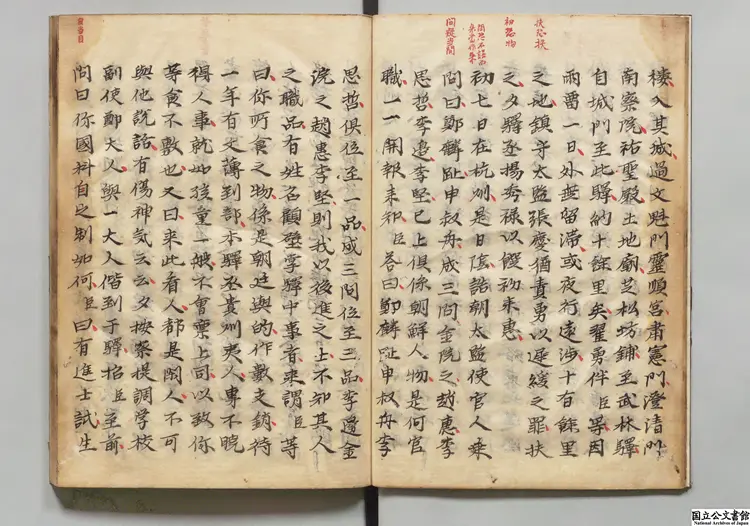 扶恐杖
初恐物
棲入其城過文魁門靈順宮肅憲門澄清門
南察院祐聖殿土地廟芝松坊鋪至武林驛
自城門至此驛納十餘里矣翟勇伴臣等因
雨雷一日外無留滯或夜行遠涉十有餘里
之地鎮守太監張慶猶責勇以遲緩之罪扶
之夕驛丞揚秀祿以饌初来惠
初七日在杭州是日陰詰朝太監使官人来
問曰鄭麟趾申叔舟成三問金浣之趙惠李
思哲李邊李堅已上俱係朝鮮人物是何官
職一一開報来知臣答曰鄭麟趾申叔舟李
思哲俱位至一品成三問位至三品李邊金
浣之趙惠李堅則我以後進之士不知其人
之職品有姓名顧壁掌驛中事者来謂臣等
曰你所食之物係是朝廷與的作數支銷待
一年有文薄到部本驛丞貴州夷人專不曉
得人事就如孩童一般不會稟上司以致你
等食不敷也又曰来此看人都是閑人不可
與他說話有傷神気云云夕按察提調学校
副使鄭大人與一大人偕到于驛招臣至前
問曰你國科自之制如何臣曰有進士試生
国立公文書館
National Archives of Japan